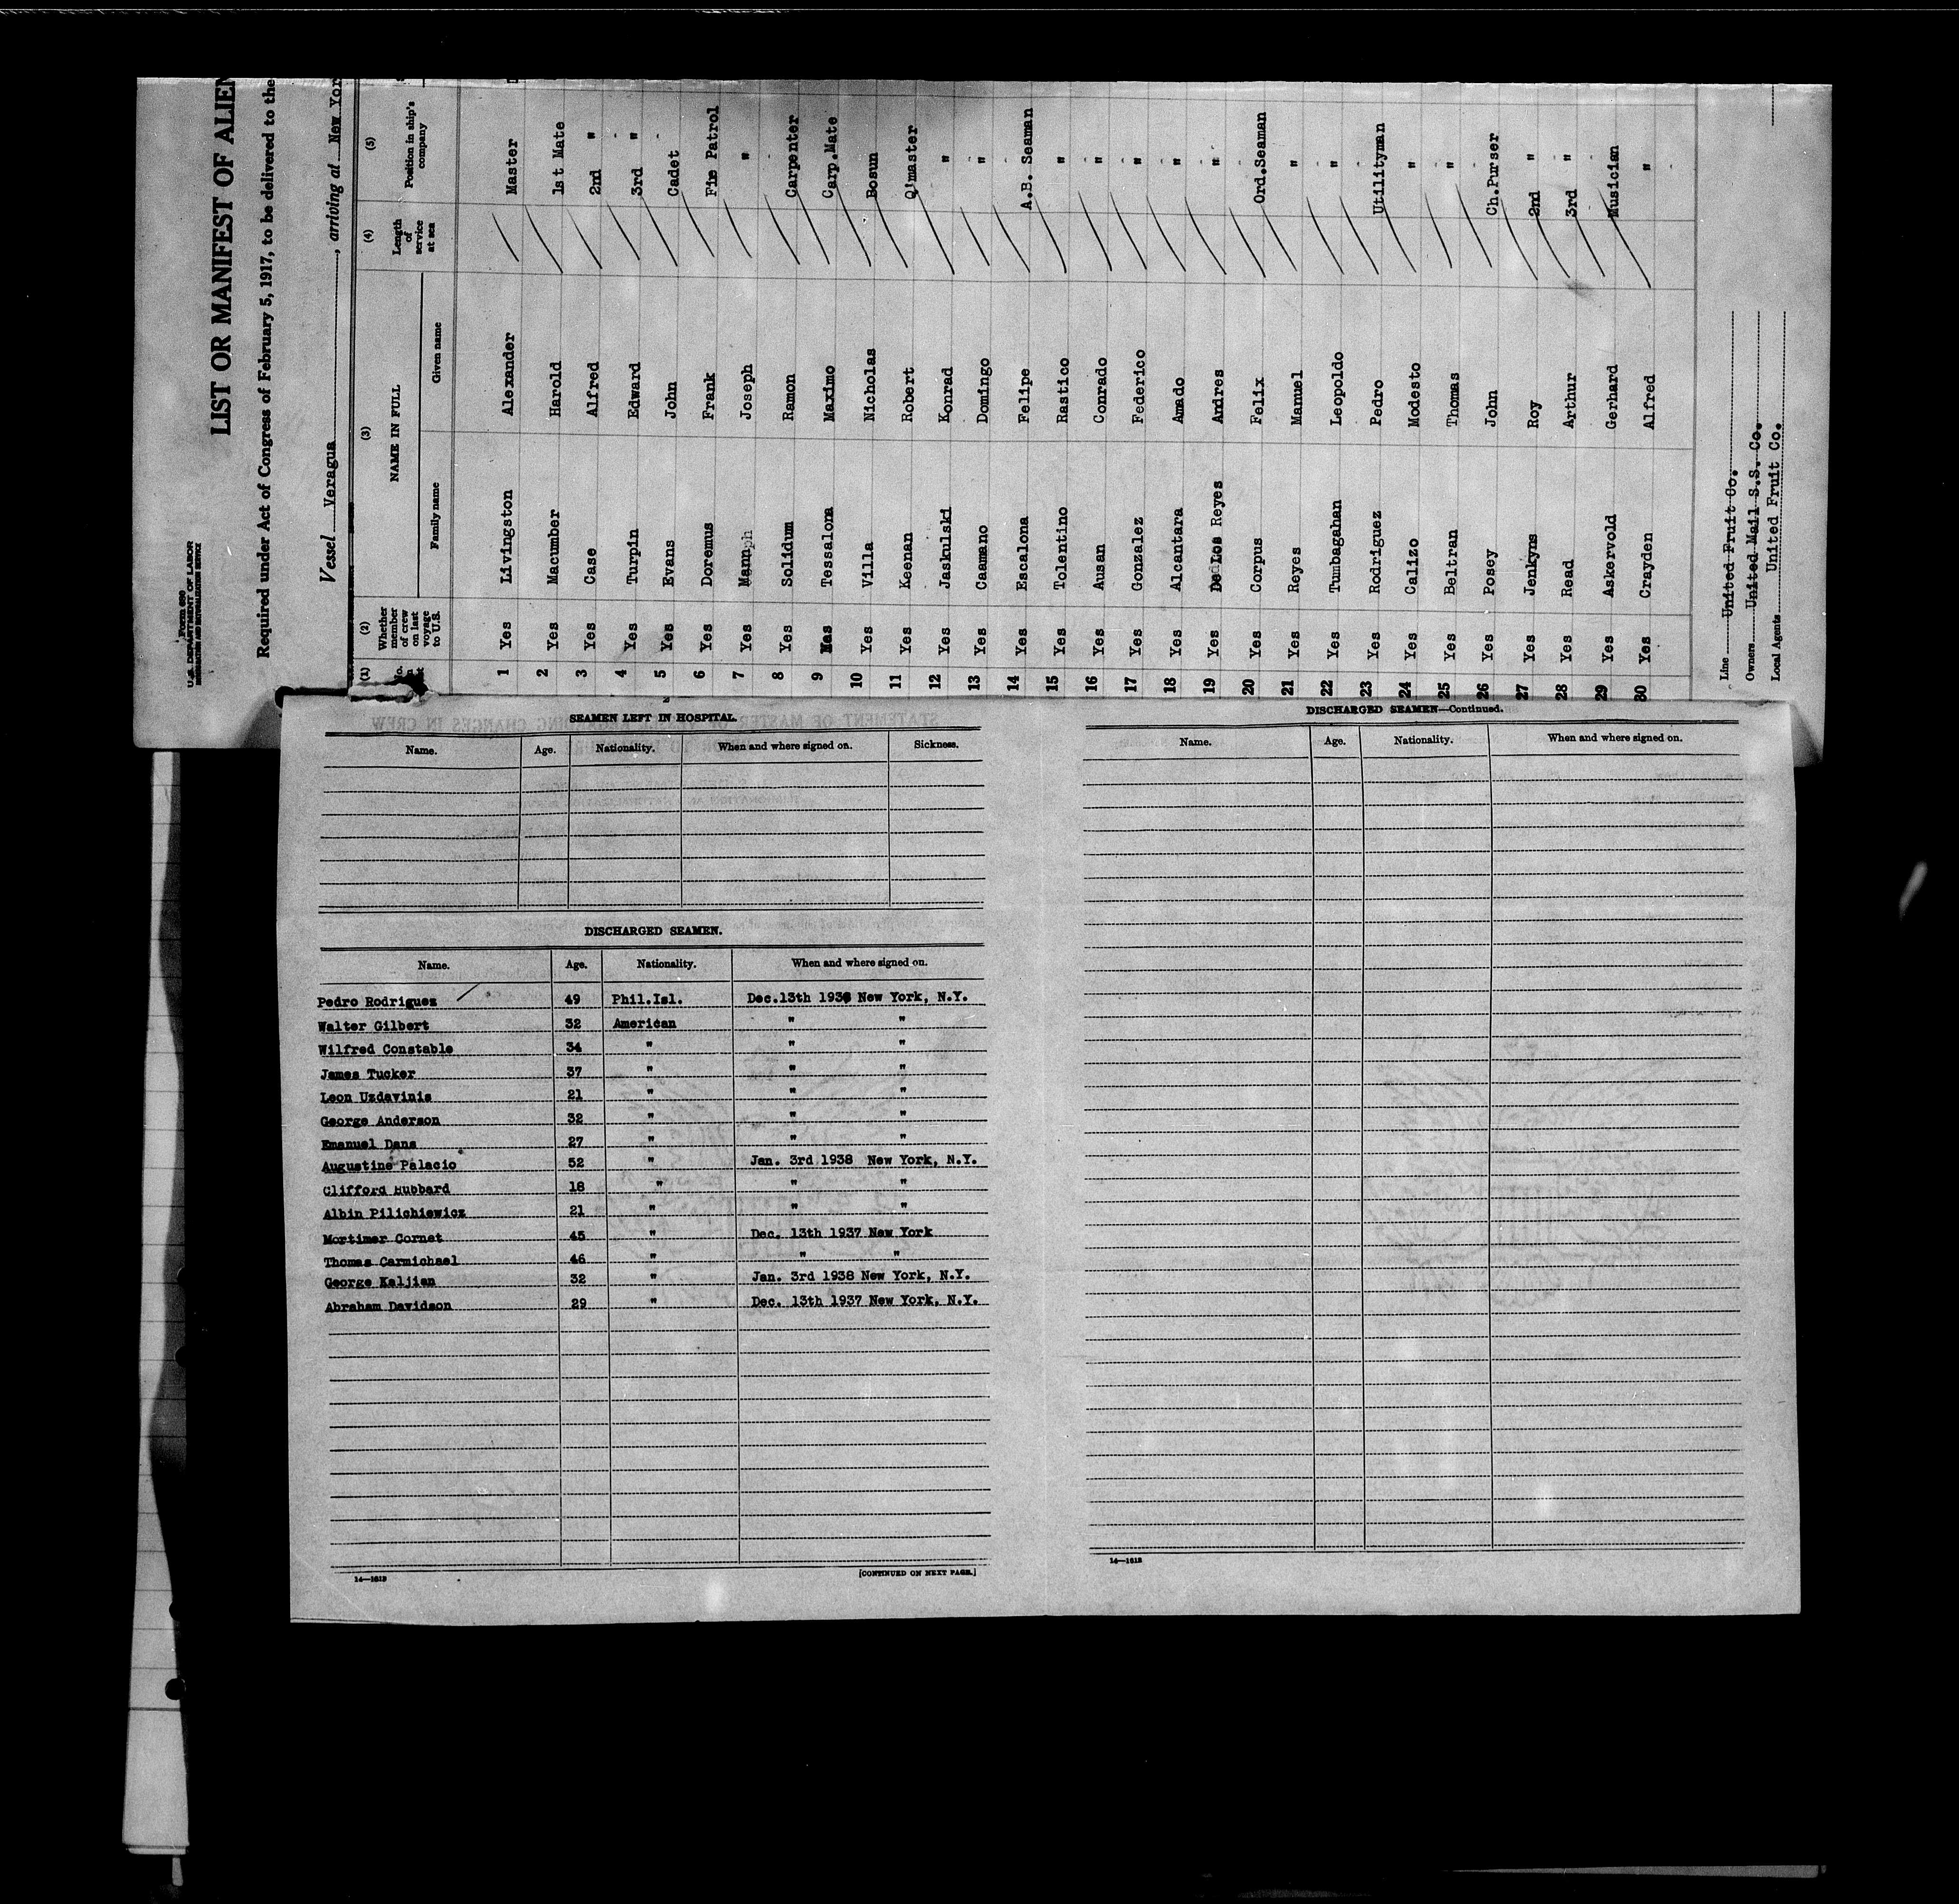 Form 680
U.S. DEPARTMENT OF LABOR
IMMIGRATION AND NATURALIZATION SERVICE
LIST OR MANIFEST OF ALIEN
Required under Act of Congress of February 5, 1917, to be delivered to the
Vessel Veragua, arriving at New Yor
(1) (2) (3) (4) (5)
Whether member of crew on last voyage to U.S. NAME IN FULL Length of service at sea Position in ship's company
Family name Given name
1 Yes Livingston Alexander Master
2 Yes Macumber Harold 1st Mate
3 Yes Case Alfred 2nd "
4 Yes Turpin Edward 3rd "
5 Yes Evans John Cadet
6 Yes Doremus Frank Fire Patrol
7 Yes Mann Joseph "
8 Yes Solidum Ramon Carpenter
9 Tessalona Maximo Carp.Mate
10 Yes Villa Nicholas Bosun
11 Yes Keenan Robert Q'master
12 Yes Jaskulski Konrad "
13 Yes Caamano Domingo "
14 Yes Escalona Felipe A.B. Seaman
15 Yes Tolentino Rastico "
16 Yes Ausan Conrado "
17 Yes Gonzalez Federico "
18 Yes Alcantara Amado "
19 Yes De Los Reyes Andres "
20 Yes Corpus Felix Ord.Seaman
21 Yes Reyes Manuel "
22 Yes Tumbagahan Leopoldo "
23 Yes Rodriguez Pedro Utilityman
24 Yes Calizo Modesto "
25 Yes Beltran Thomas "
26 Yes Posey John Ch.Purser
27 Yes Jenkyns Roy 2nd "
28 Yes Read Arthur 3rd "
29 Yes Askervold Gerhard Musician
30 Yes Crayden Alfred "
Line United Fruit Co.
Owners United Mail S.S. Co.
Local Agents United Fruit Co.
SEAMEN LEFT IN HOSPITAL.
Name. Age. Nationality. When and where signed on. Sickness.
DISCHARGED SEAMEN.
Name. Age. Nationality. When and where signed on.
Pedro Rodriguez 49 Phil.Isl. Dec.13th 193 New York, N.Y.
Walter Gilbert 32 American " "
Wilfred Constable 34 " " "
James Tucker 37 " " "
Leon Uzdavinis 21 " " "
George Anderson 32 " " "
Emanuel Dans 27 " " "
Augustine Palacio 52 " Jan. 3rd 1938 New York, N.Y.
Clifford Hubbard 18 " " "
Albin Pilichiewicz 21 " " "
Mortimer Cornet 45 " Dec. 13th 1937 New York
Thomas Carmichael 46 " " "
George Kaljian 32 " Jan. 3rd 1938 New York, N.Y.
Abraham Davidson 29 " Dec. 13th 1937 New York, N.Y.
14—1613
[CONTINUED ON NEXT PAGE.]
DISCHARGED SEAMEN—Continued.
Name. Age. Nationality. When and where signed on.
14—1613